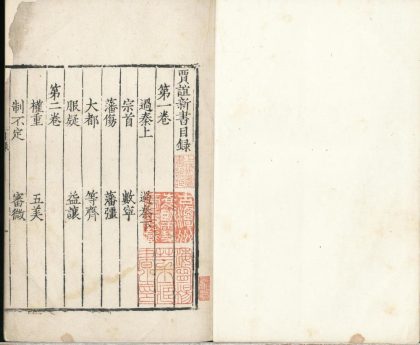 賈誼新書目録
第一卷
過秦上 過秦下
宗首 數寧
藩傷 藩彊
大都 等齊
服疑 益壤
第二卷
權重 五美
制不定 審微